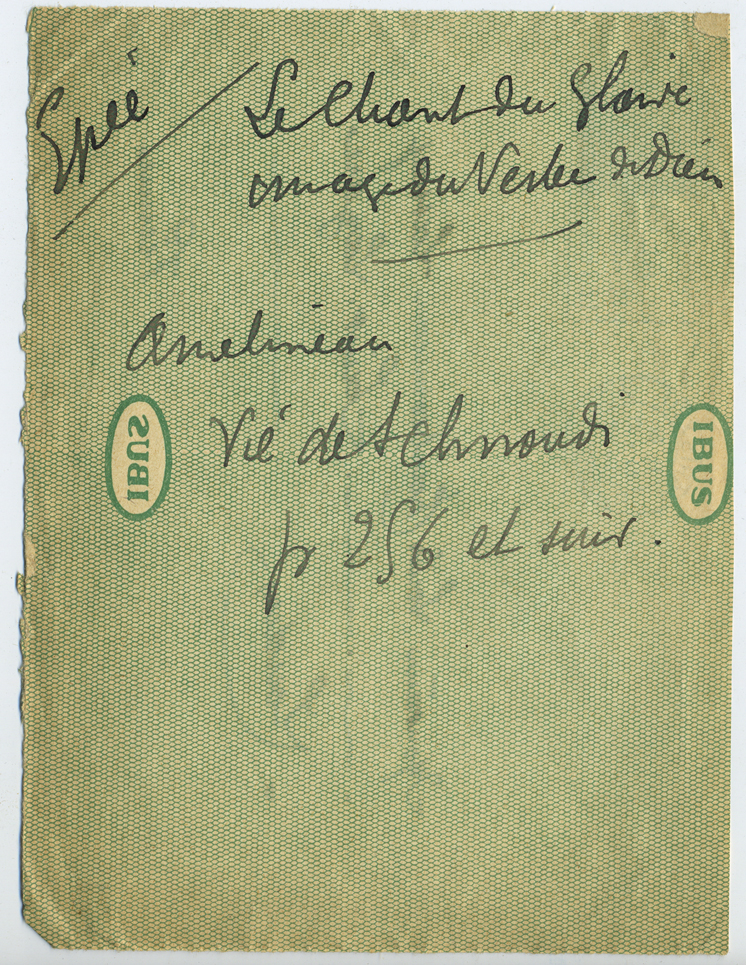 Epée
Le Chant du Glaive
image du Verbe de Dieu
Amelineau
Vie de Schnoudi
IBUS
IBUS
p 256 et suiv.